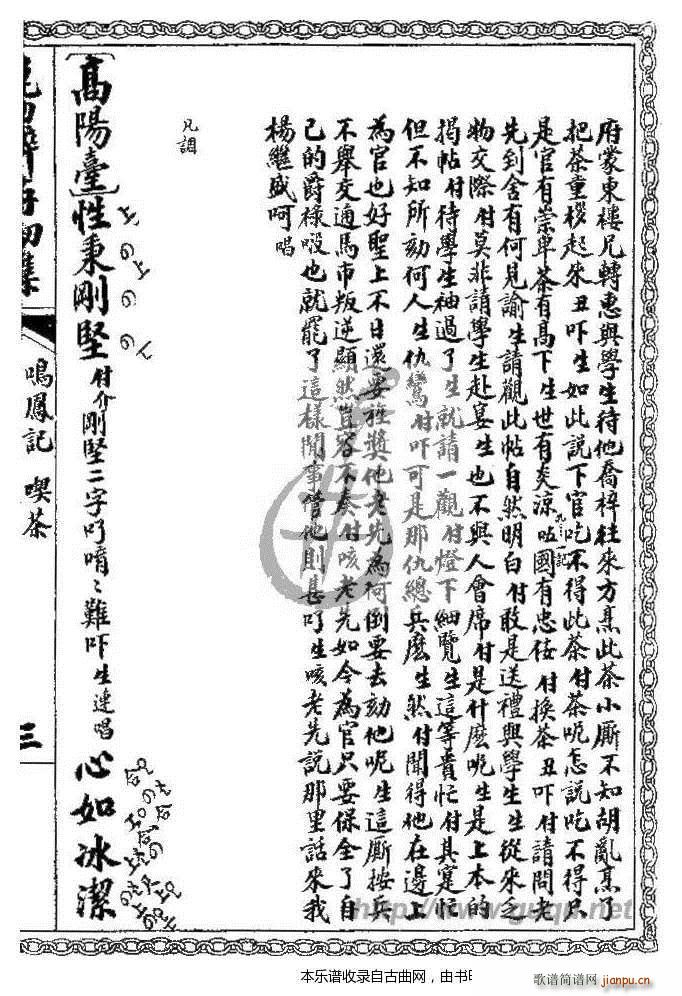 府蒙東樓兄轉惠與學生待他喬梓往來方烹此茶小厮不知胡亂烹了
把茶重椤起來丑吓生如此説下官吃不得此茶付茶呢怎説吃不得只
是官有崇卑茶有高下生世有炎涼呍國有忠佞付換茶丑吓付請問老
先到舍有何見諭生請觀此帖自然明白付敢是送禮與學生生從來乏
物交際付莫非請學生赴宴生也不與人會席付是什麽呢生是上本的
揭帖付待學生袖過了生就請一觀付燈下細覽生這等貴忙付其寔忙
但不知所劾何人生仇鸞付吓可是那仇總兵麽生然付聞得他在邊上
為官也好聖上不日還要旌獎他老先為何倒要去劾他呢生這厮按兵
不舉交通馬市叛逆顯然豈容不奏付咳老先如今為官只要保全了自
己的爵祿啵也就罷了這樣閒事管他則甚吖生咳老先説那里話來我
楊繼盛呵唱
凡調
高陽臺 性秉剛堅 付介剛堅二字吖唷〻難吓生連唱 心如冰潔
鳴鳳記 喫茶
三
http://www.guqu.net
本乐谱收录自古曲网，由书
歌谱简谱网
jianpu.cn